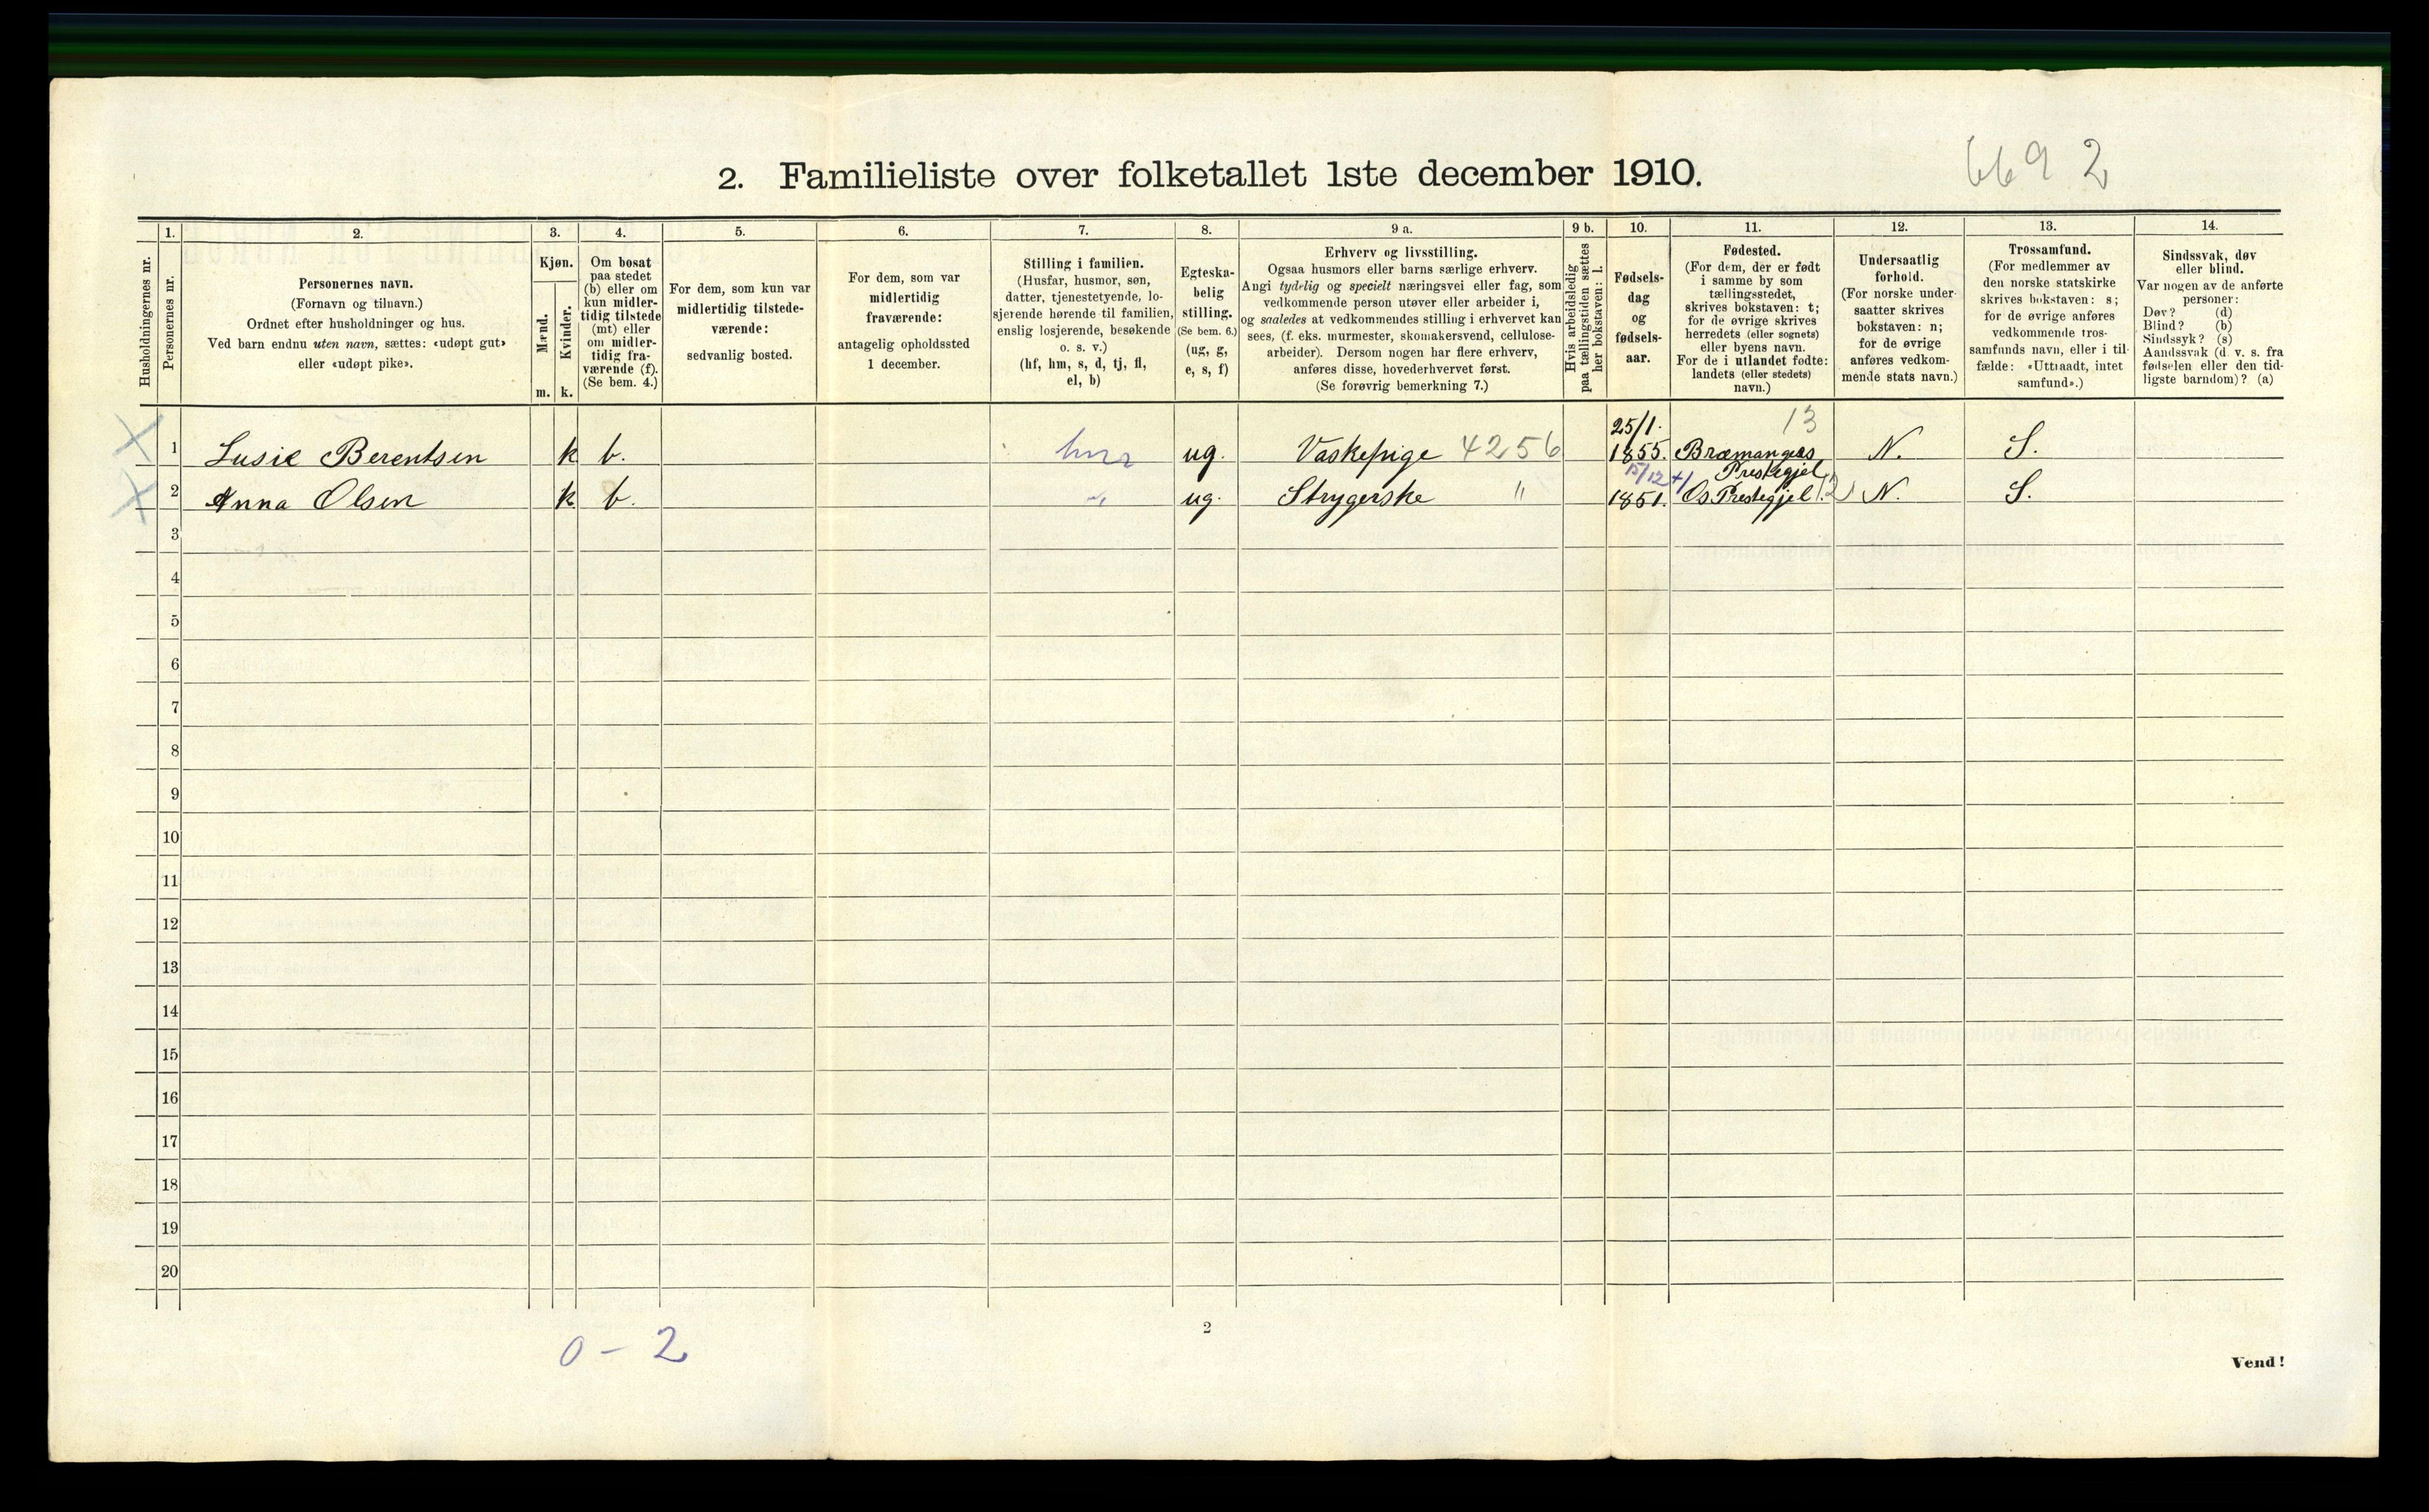 6692
2. Familieliste over folketallet 1ste december 1910.
1. 2. 3. 4. 5. 6. 7. 8. 9 a. 9 b. 10. 11. 12. 13. 14.
Husholdningernes nr.
Personernes nr.
Personernes navn.
(Fornavn og tilnavn.)
Ordnet efter husholdninger og hus.
Ved barn endnu uten navn, sættes: «udøpt gut»
eller «udøpt pike».
Kjøn.
Mænd.
Kvinder.
m. k.
Om bosat
paa stedet
(b) eller om
kun midler-
tidig tilstede
(mt) eller
om midler-
tidig fra-
værende (f).
(Se bem. 4.)
For dem, som kun var
midlertidig tilstede-
værende:
sedvanlig bosted.
For dem, som var
midlertidig
fraværende:
antagelig opholdssted
1 december.
Stilling i familien.
(Husfar, husmor, søn,
datter, tjenestetyende, lo-
sjerende hørende til familien,
enslig losjerende, besøkende
o. s. v.)
(hf, hm, s, d, tj, fl,
el, b)
Egteska-
belig
stilling.
(Se bem. 6.)
(ug, g,
e, s, f)
Erhverv og livsstilling.
Ogsaa husmors eller barns særlige erhverv.
Angi tydelig og specielt næringsvei eller fag, som
vedkommende person utøver eller arbeider i,
og saaledes at vedkommendes stilling i erhvervet kan
sees, (f. eks. murmester, skomakersvend, cellulose-
arbeider). Dersom nogen har flere erhverv,
anføres disse, hovederhvervet først.
(Se forøvrig bemerkning 7.)
Hvis arbeidsledig
paa tællingstiden sættes
her bokstaven: l.
Fødsels-
dag
og
fødsels-
aar.
Fødested.
(For dem, der er født
i samme by som
tællingsstedet,
skrives bokstaven: t;
for de øvrige skrives
herredets (eller sognets)
eller byens navn.
For de i utlandet fødte:
landets (eller stedets)
navn.)
Undersaatlig
forhold.
(For norske under-
saatter skrives
bokstaven: n;
for de øvrige
anføres vedkom-
mende stats navn.)
Trossamfund.
(For medlemmer av
den norske statskirke
skrives bokstaven: s;
for de øvrige anføres
vedkommende tros-
samfunds navn, eller i til-
fælde: «Uttraadt, intet
samfund».)
Sindssvak, døv
eller blind.
Var nogen av de anførte
personer:
Døv? (d)
Blind? (b)
Sindssyk? (s)
Aandssvak (d. v. s. fra
fødselen eller den tid-
ligste barndom)? (a)
25/1. 13
X 1 Lusie Berentsen k b. ug. Vaskepige 4256 1855. Bræmangers N. S.
15/12 Prestegjel.
X 2 Anna Olsen k b. " ug. Strygerske " 1851. Os Prestegjel. 12 N. S.
3
4
5
6
7
8
9
10
11
12
13
14
15
16
17
18
19
20
0 - 2
2
Vend!